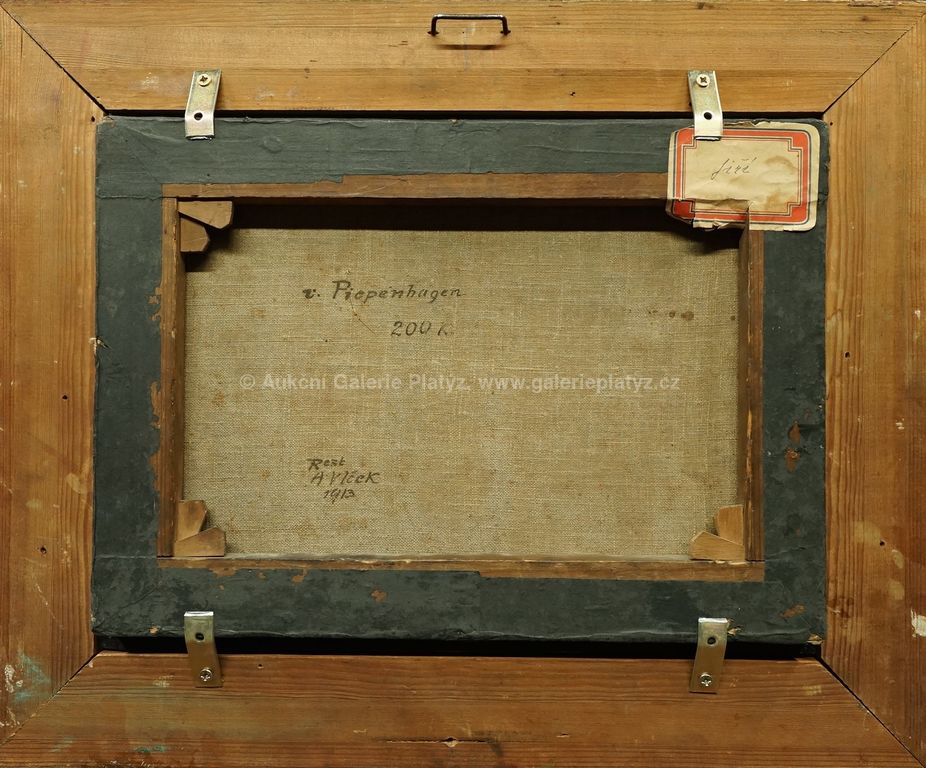 Jiří
v. Piepenhagen
200 K
© Aukční Galerie Platyz, www.galerieplatyz.cz
Rest
A Vlček
1913